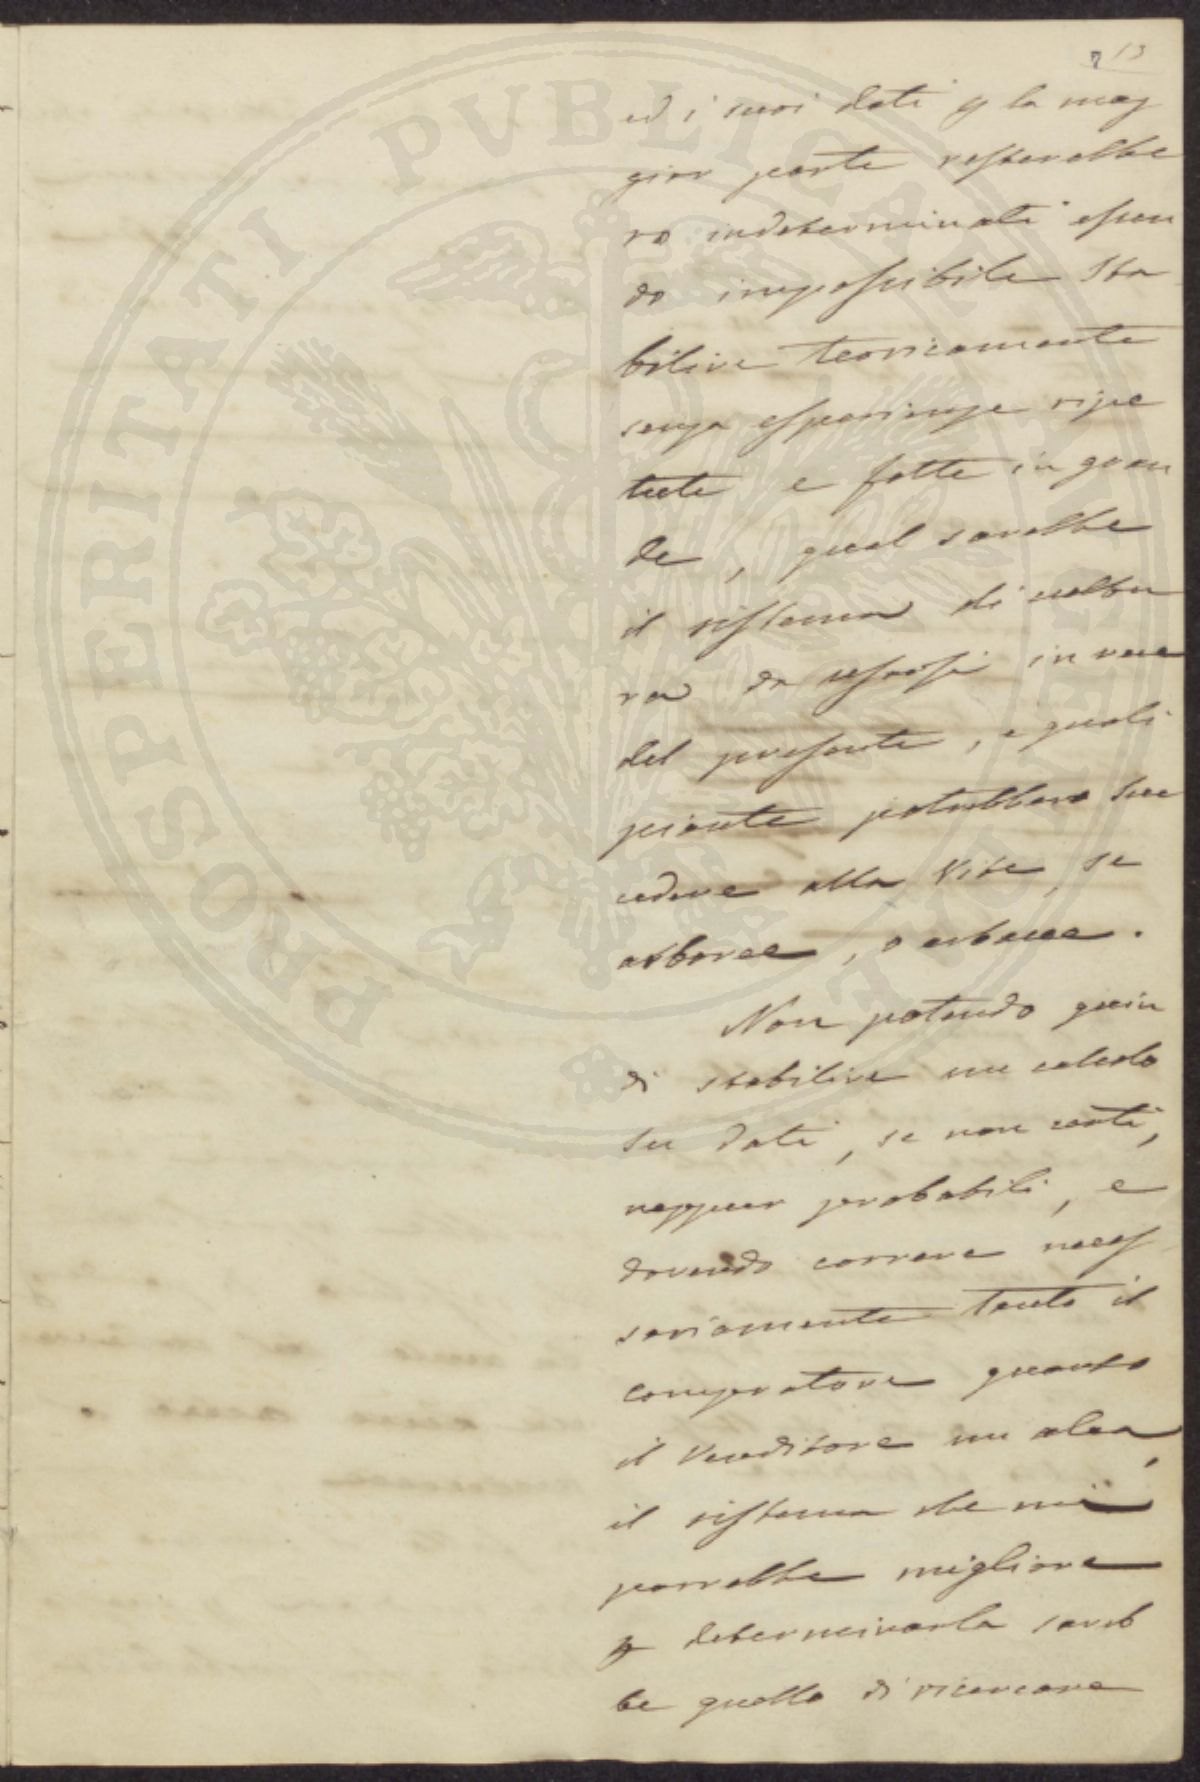 7 13
ed i suoi dati p la mag
gior parte resterebbe
ro indeterminati essen
do impossibile sta
bilire teoricamente
senza esperienze ripe
tute e fatte in gran
de, qual sarebbe
il sistema di coltu
ra da usarsi in vece
del presente, e quali
piante potrebbero suc
cedere alla Vite, se
arboree, o erbacee.
Non potendo quin
di stabilire un calcolo
su dati, se non certi,
neppur probabili, e
dovendo correre neces
sariamente tanto il
compratore quanto
il Venditore un alea,
il sistema che mi
parrebbe migliore
p determinarla sareb
be quello di ricercare
PROSPERITATI PUBLICAE AUGENDAE